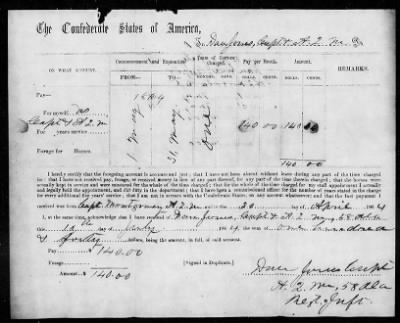 The Confederate States of America,
To Dave Jones, Capt & A. Q. M. Dr.
ON WHAT ACCOUNT.
Commencement and Expiration
Term of Service Charged.
Pay per Month.
Amount.
REMARKS.
FROM— TO—
MONTHS. DAYS. DOLLS. CTS. DOLLS. CTS.
Pay—
For myself
Capt & A. Q. M
140 00 140 00
For years service
1 May 31 May one
Forage for Horses.
140 00
I hereby certify that the foregoing account is accurate and just; that I have not been absent without leave during any part of the time charged
for; that I have not received pay, forage, or received money in lieu of any part thereof, for any part of the time therein charged; that the horses were
actually kept in service and were mustered for the whole of the time charged; that for the whole of the time charged for my staff appointment I actually
and legally held the appointment, and did duty in the department; that I have been a commissioned officer for the number of years stated in the charge
for every additional five years' service; that I am not in arrears with the Confederate States, on any account whatsoever; and that the last payment I
received was from Capt Montgomery A. Q. M
April 1864
I, at the same time, acknowledge that I have received of Dave Jones, Capt & A. Q. M, 58 Ala
this 10th day of
1864 the sum of One Hundred
& forty dollars, being the amount, in full, of said account.
Pay $140.00
Forage
Amount $140.00
[Signed in Duplicate.]
Dave Jones Capt
A. Q. M, 58 Ala
Regt Inft